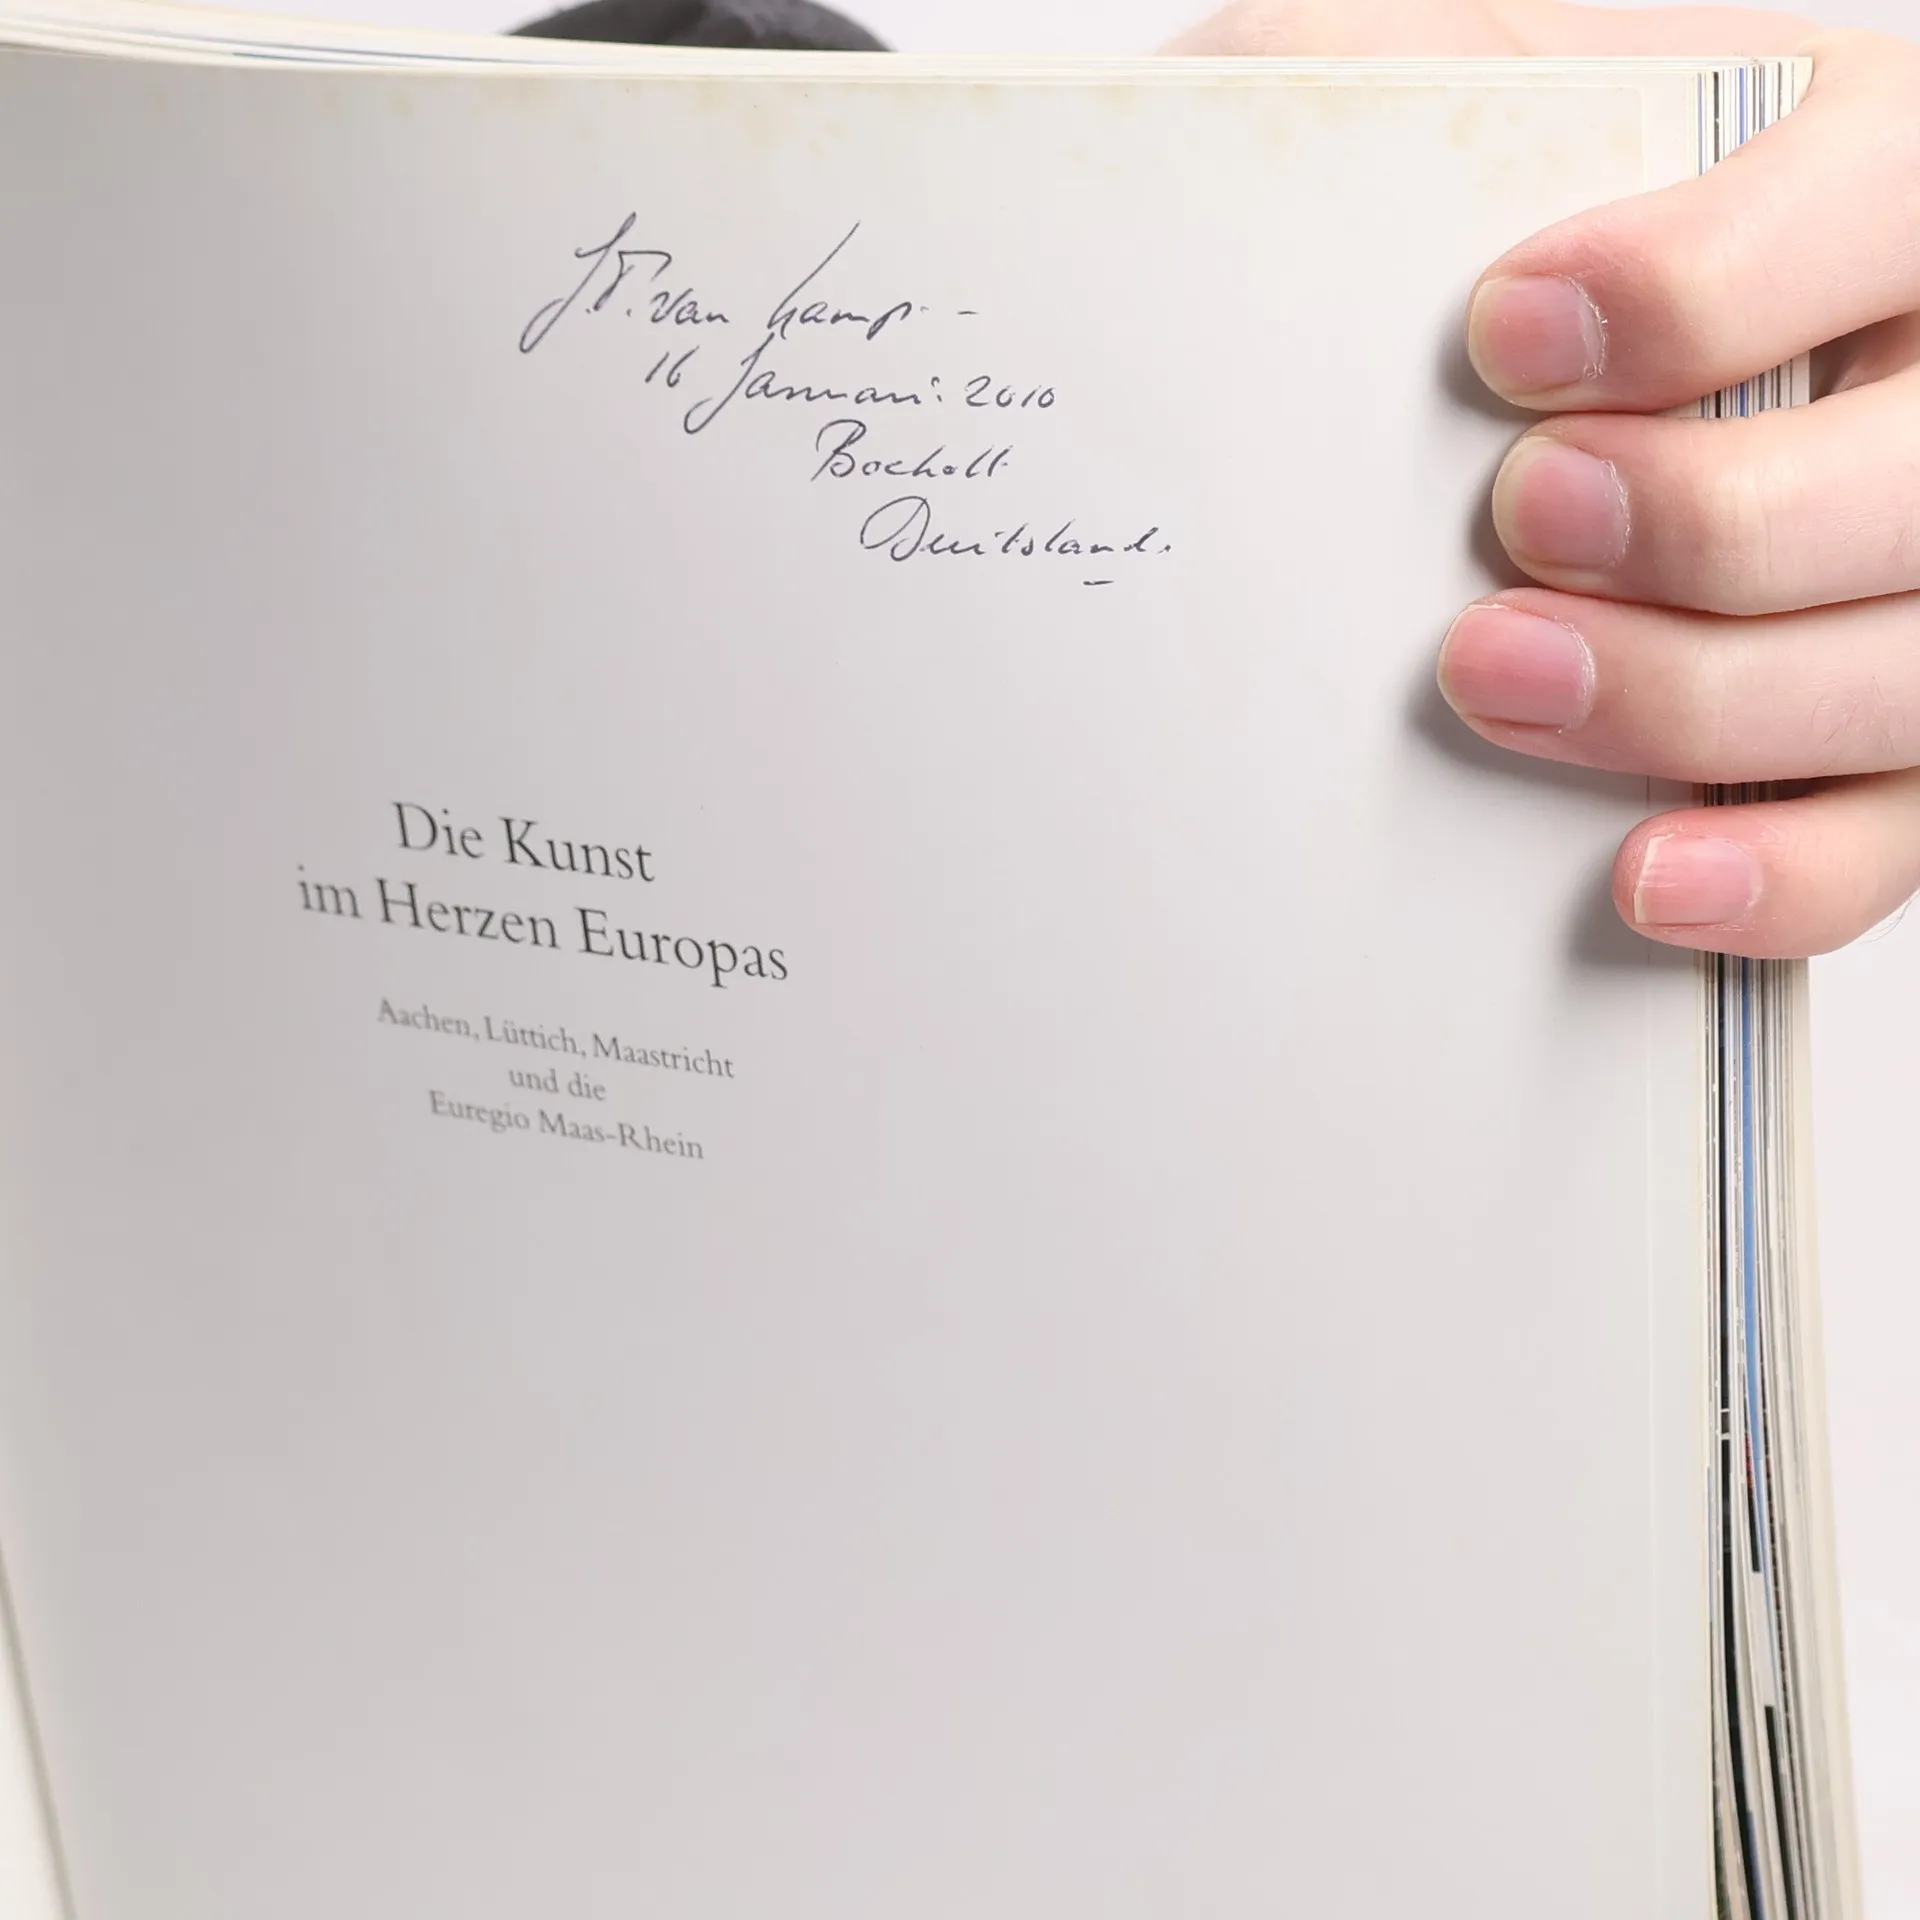 J.T. van Kamp -
16 Januari 2010
Bocholt
Duitsland.
Die Kunst
im Herzen Europas
Aachen, Lüttich, Maastricht
und die
Euregio Maas-Rhein